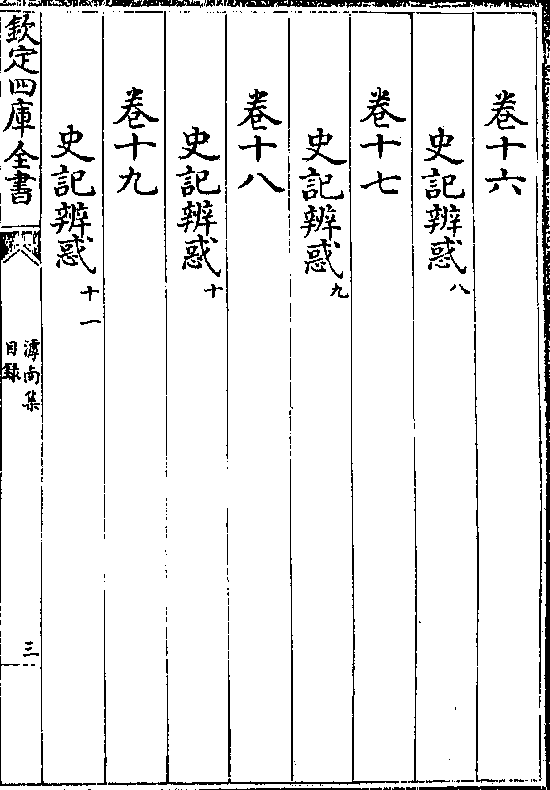 卷十六
史記辨惑八
卷十七
史記辨惑九
卷十八
史記辨惑十
卷十九
史記辨惑十一
欽定四庫全書
滹南集
目錄
三